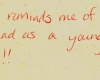 reminds me of
ad as a young
!!